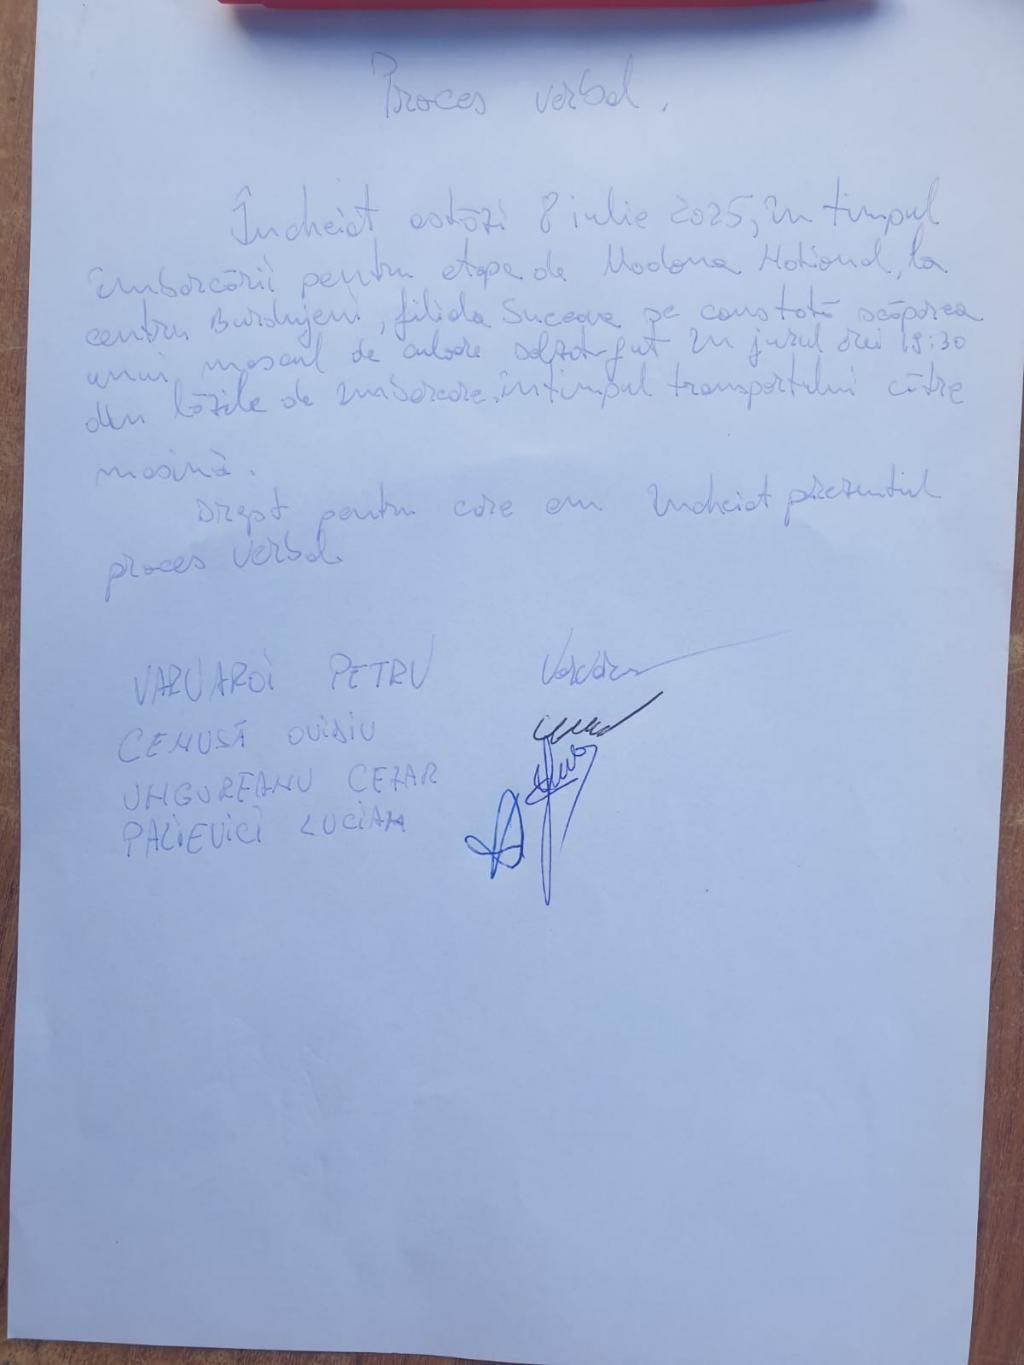 Proces verbal.
Încheiat astăzi 8 iulie 2025, în timpul
îmbarcării pentru etapa de Madona Național, la
centru Burdujeni, filiala Suceava se constată scăparea
unui mascul de culoare solzat în jurul orei 19:30
din lăzile de îmbarcare. în timpul transportului către
mașină.
Drept pentru care am încheiat prezentul
proces verbal
VARVAROI PETRU
CENUSĂ OVIDIU
UNGUREANU CEZAR
PALIEVICI LUCIAN